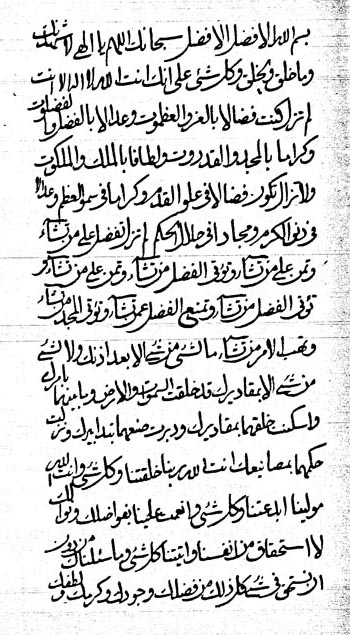 بسم الله الافضل الافضل سبحانك اللهم يا الهي لاشهدنك
وما خلق ويخلق وكل شئ على انك انت الله لا اله الا انت
لم تزل كنت فضالا بالعز والعظموت وعدالا بالفضل والفضلوت
وكراما بالمجد والقدروت ولطافا بالملك والملكوت
ولا تزال تكون فضالا في علو القدم وكراما في سمو العظم وعدالا
في دنو الكرم ومجادا في جلال الحلم لم تزل تفضل على من تشاء
وتمن على من تشاء وتؤتي الفضل من تشاء وتمن على من تشاء و
تؤتي الفضل من تشاء وتمنع الفضل عمن تشاء وتؤتي المجد من تشاء
وتهب الامر من تشاء ما لشئ من شئ الا بعد اذنك ولا لشئ
من شئ الا بمقاديرك قد خلقت السموات والارض وما بينهما بامرك
واسكنت خلقهما بمقاديرك ودبرت صنعهما بتدابيرك ونزلت
حكمهما بصنايعك انت الله ربنا خلقتنا وكل شئ وانت الله
مولينا ابدعتنا وكل شئ وانعمت علينا بفواضلك
لا استحقاق من انفسنا واتيتنا كل شئ وما سئلناك من دون
ان نستحق في شئ كل ذلك من فضلك وجودك وكرمك ولطفك